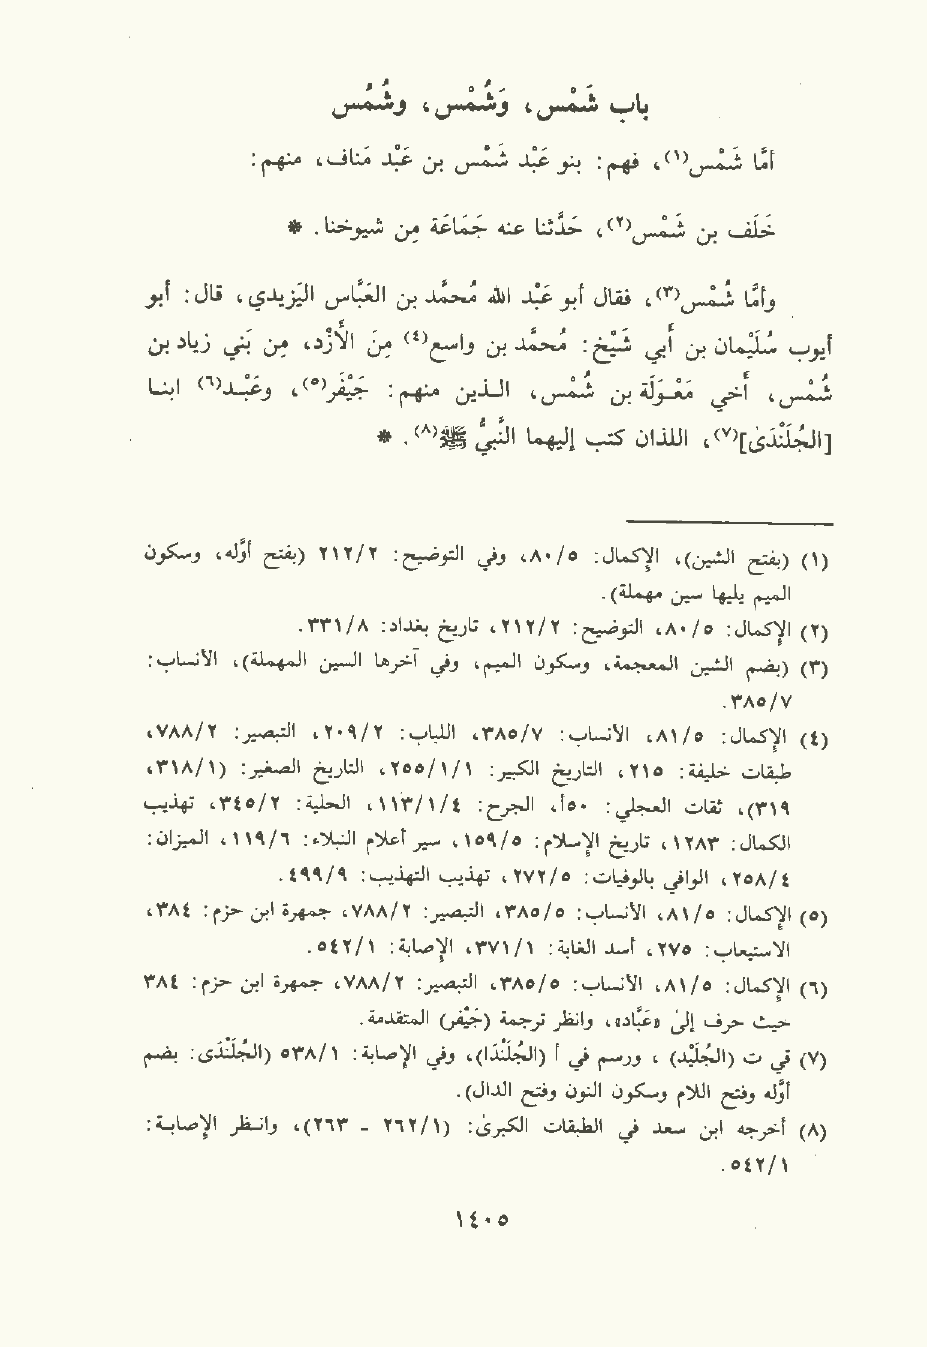 باب شَمْس، وَشُمْس، وشُمُس
أمَّا شَمْس(١)، فهم: بنو عَبْد شَمْس بن عَبْد مَناف، منهم:
خَلَف بن شَمْس(٢)، حَدَّثنا عنه جَمَاعَة مِن شيوخنا. *
وأمَّا شُمْس(٣)، فقال أبو عَبْد الله مُحمَّد بن العَبَّاس اليَزيدي، قال: أبو
أيوب سُلَيْمان بن أبي شَيْخ: مُحمَّد بن واسع(٤) مِنَ الأَزْد، مِن بَني زياد بن
شُمْس، أخي مَعْوَلَة بن شُمْس، الـذين منهم: جَيْفَر(٥)، وعَبْـد(٦) ابنـا
[الجُلَنْدَىٰ](٧)، اللذان كتب إليهما النَّبيُّ ﷺ(٨). *
(١) (بفتح الشين)، الإكمال: ٨٠/٥، وفي التوضيح: ٢١٢/٢ (بفتح أوَّله، وسكون
الميم يليها سين مهملة).
(٢) الإكمال: ٨٠/٥، التوضيح: ٢١٢/٢، تاريخ بغداد: ٣٣١/٨.
(٣) (بضم الشين المعجمة، وسكون الميم، وفي آخرها السين المهملة)، الأنساب:
٣٨٥/٧.
(٤) الإكمال: ٨١/٥، الأنساب: ٣٨٥/٧، اللباب: ٢٠٩/٢، التبصير: ٧٨٨/٢،
طبقات خليفة: ٢١٥، التاريخ الكبير: ٢٥٥/١/١، التاريخ الصغير: (٣١٨/١،
٣١٩)، ثقات العجلي: ٥٠أ، الجرح: ١١٣/١/٤، الحلية: ٣٤٥/٢، تهذيب
الكمال: ١٢٨٣، تاريخ الإسلام: ١٥٩/٥، سير أعلام النبلاء: ١١٩/٦، الميزان:
٢٥٨/٤، الوافي بالوفيات: ٢٧٢/٥، تهذيب التهذيب: ٤٩٩/٩.
(٥) الإكمال: ٨١/٥، الأنساب: ٣٨٥/٥، التبصير: ٧٨٨/٢، جمهرة ابن حزم: ٣٨٤،
الاستيعاب: ٢٧٥، أسد الغابة: ٣٧١/١، الإصابة: ٥٤٢/١.
(٦) الإكمال: ٨١/٥، الأنساب: ٣٨٥/٥، التبصير: ٧٨٨/٢، جمهرة ابن حزم: ٣٨٤
حيث حرف إلىٰ «عَبَّاد»، وانظر ترجمة (جَيْفَر) المتقدمة.
(٧) في ت (الجُلَيْد) ، ورسم في أ (الجُلَنْدَا)، وفي الإصابة: ٥٣٨/١ (الجُلَنْدَى: بضم
أوَّله وفتح اللام وسكون النون وفتح الدال).
(٨) أخرجه ابن سعد في الطبقات الكبرىٰ: (٢٦٢/١ - ٢٦٣)، وانـظر الإصابـة:
٥٤٢/١.
١٤٠٥